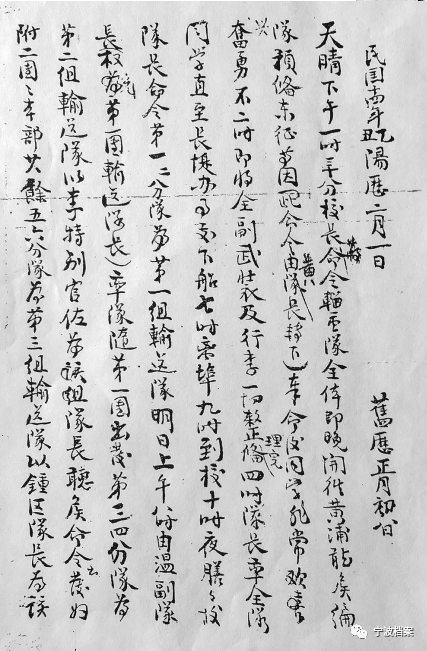 民国十四年乙丑陽歷二月一日 舊歷正月初日
天晴下午一时三十分校長發命令輜重隊全体即晚開往黄浦候編
隊預備東征等因此命令由黄隊長轉下奉令後同学非常欢喜兴
奮勇不二时即将全副武装及行李一切整理完備四时隊長率全隊
同学直至長堤办事处下船七时埠九时到校十时夜膳々後
隊長命令第一二分隊为第一组輸送隊明日上午八时由温副隊
長为第一團輸送隊長)率隊隨第一團出發第三四分隊为
第二组輸送隊以李特别官佐为該组隊長聽候命令出發归
附二團々本部其餘五六分隊为第三组輸送隊以鍾区隊長为該
宁波档案